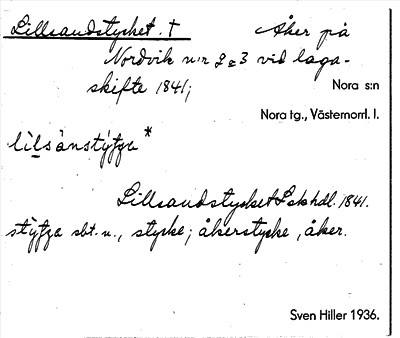 Lillsandstycket. † Åker på
Nordvik n:r 2 o 3 vid laga-
skifte 1841;
Nora s:n
Nora tg., Västernorrl. l.
lìlsànstýʃʒa *
Lillsandstycket Lskhdl. 1841.
stýʃʒa sbt. n., stycke; åkerstycke, åker.
Sven Hiller 1936.